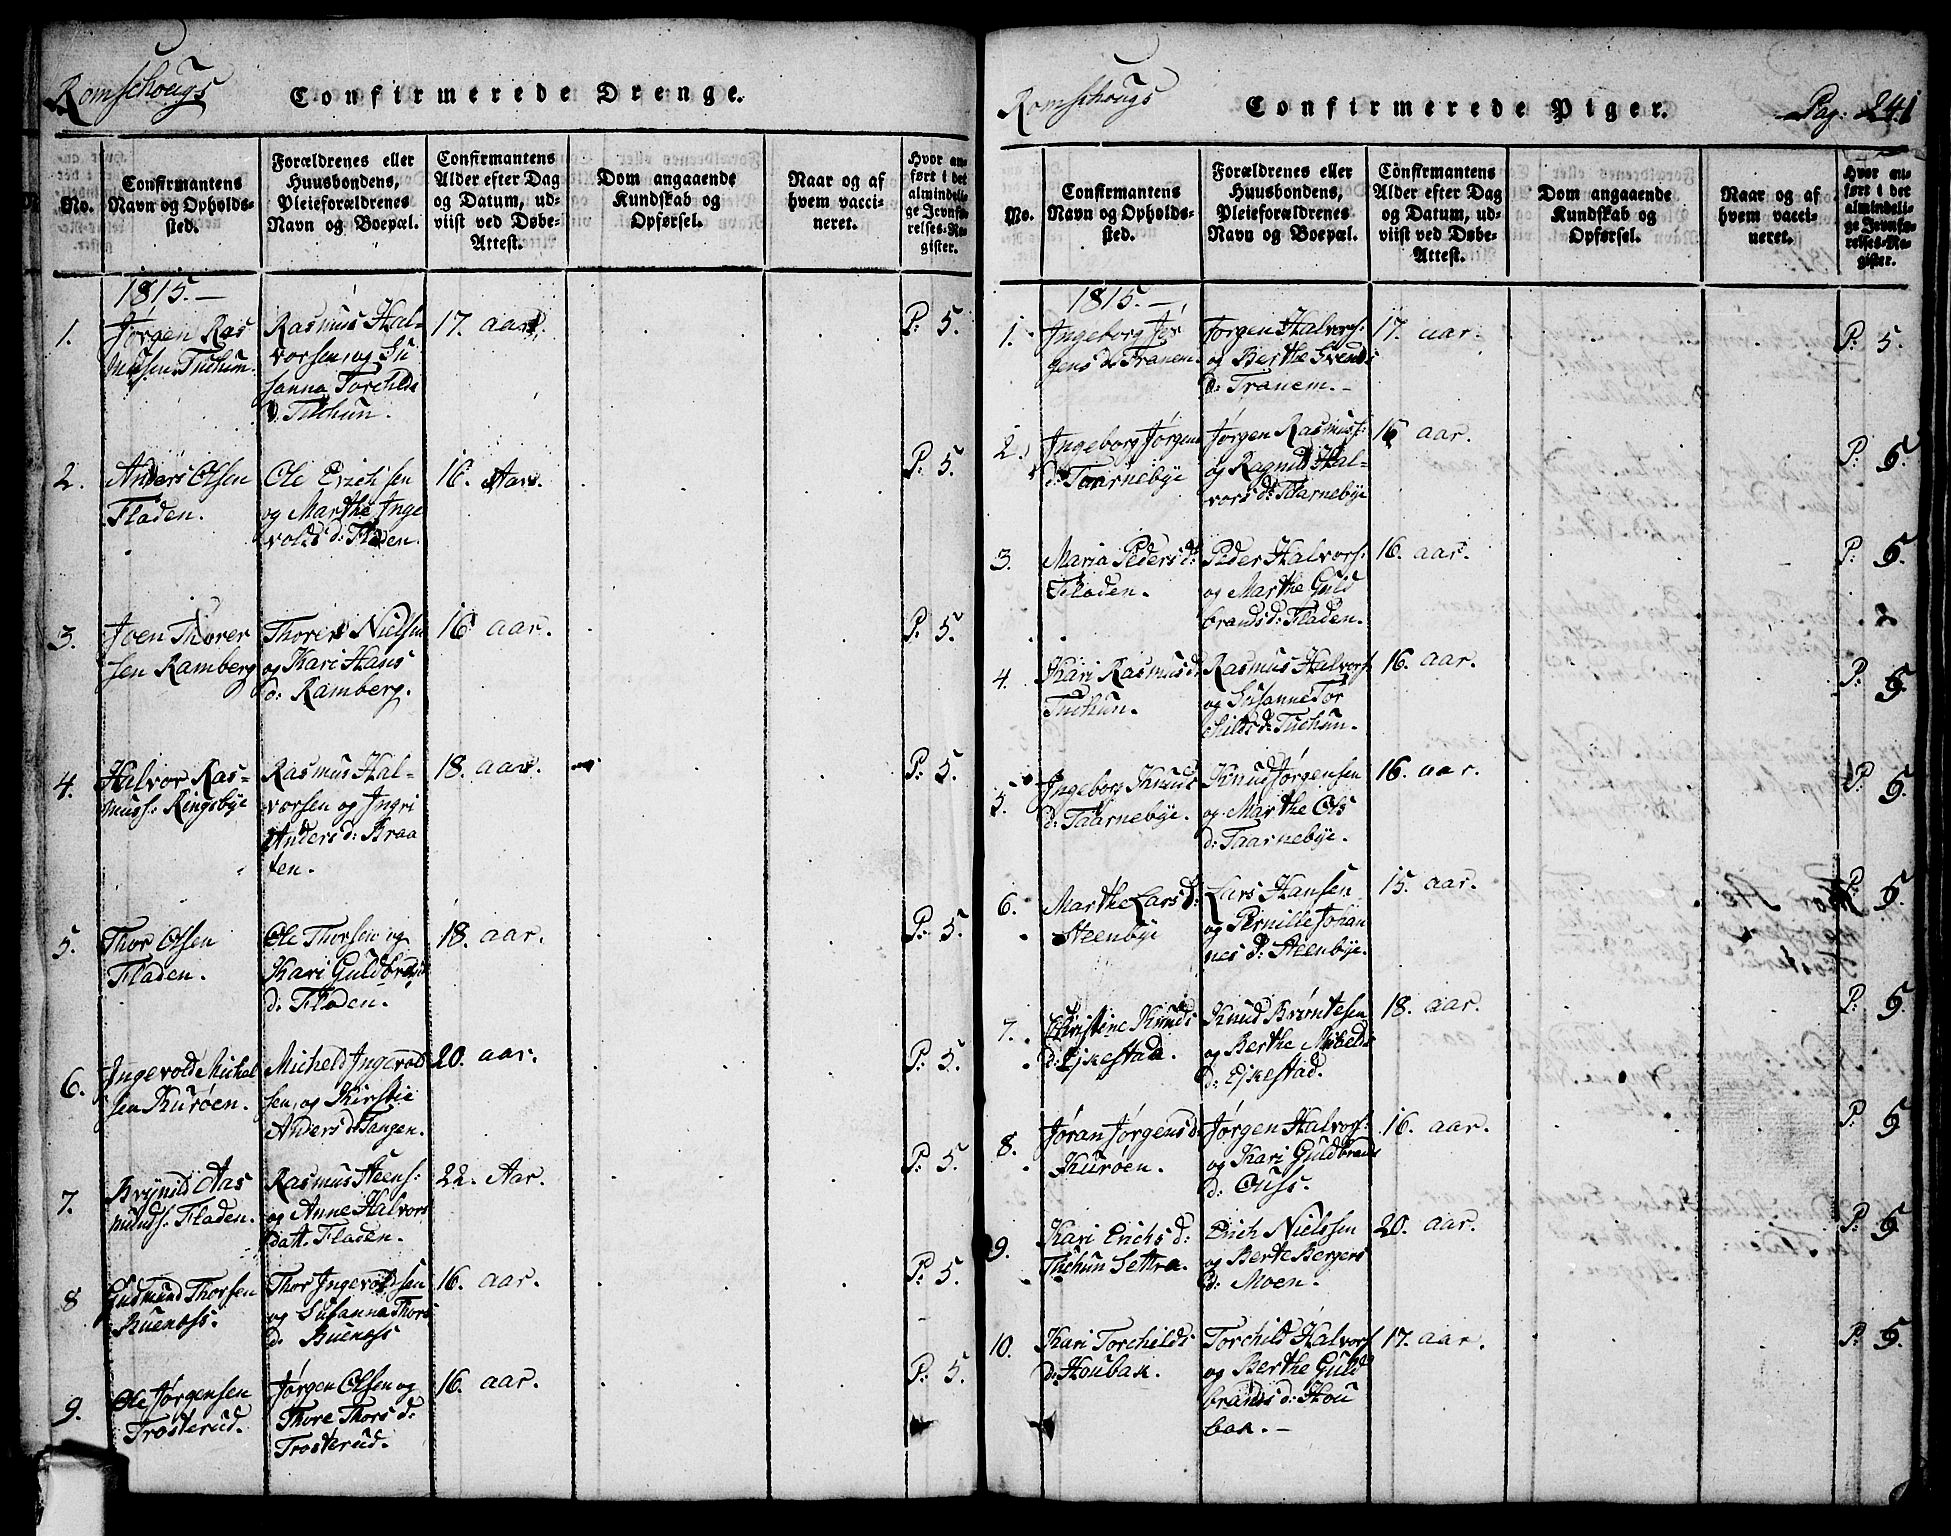 Romschougs
Confirmerede Drenge.
No.
Confirmantens
Navn og Opholds-
sted.
Forældrenes eller
Huusbondens,
Pleieforældrenes
Navn og Boepæl.
Confirmantens
Alder efter Dag
og Datum, ud-
viist ved Døbe-
Attest.
Dom angaaende
Kundskab og
Opførsel.
Naar og af
hvem vacci-
neret.
Hvor an-
ført i det
almindeli-
ge Jevnfø-
relses-Re-
gister.
1815. –
1.
Jørgen Ras
musen Tuchun.
Rasmus Hal-
vorsen, og Su
sanna Torchilds
d. Tuchun.
17. aar.
P: 5.
2.
Anders Olsen
Fladen.
Ole Erichsen
og Marthe Inge
volds d: Fladen.
16. Aar.
P: 5.
3.
Joen Thorer
sen Ramberg
Thorer Nielsen
og Kari Hans
d: Ramberg.
16 aar.
P: 5.
4.
Halvor Ras-
muss: Ringsbye
Rasmus Hal-
vorsen og Ingri
Anders d: Braa
ten.
18. aar.
P: 5.
5.
Thor Olsen
Fladen.
Ole Thorsen og
Kari Guldbrands
d: Fladen.
18. aar.
P: 5.
6.
Ingevold Michel
sen Kurøen.
Micheld Ingevold
sen, og Kirstie
Anders d: Tangen.
20. aar.
P: 5.
7.
Brynild Aas
munds. Fladen.
Rasmus Steens:
og Anne Halvors
datt. Fladen.
22. Aar.
P: 5.
8
Gudmund Thorsen
Buenæss.
Thor Ingevoldsen
og Susanna Thors
d: Buenæss
16. aar.
P: 5.
9.
Ole Jørgensen
Trosterud.
Jørgen Olsen og
Thore Thors d:
Trosterud.
16. aar.
P: 5.
Romschougs
Confirmerede Piger.
Pag: 241
No.
Confirmantens
Navn og Opholds-
sted.
Forældrenes eller
Huusbondens,
Pleieforældrenes
Navn og Boepæl.
Confirmantens
Alder efter Dag
og Datum, ud-
viist ved Døbe-
Attest.
Dom angaaende
Kundskab og
Opførsel.
Naar og af
hvem vacci-
neret.
Hvor an-
ført i det
almindeli-
ge Jevnfø-
relses-Re-
gister.
1815. –
1.
Ingeborg Jør
gens d. Tranem.
Jørgen Halvors:
og Berthe Svends
d: Tranem. –
17. aar.
P: 5.
2.
Ingeborg Jørgens
d: Taarnebye
Jørgen Rasmuss:
og Ragnild Hal-
vors d: Taarnebye
16 aar.
P: 5.
3.
Maria Peders d:
Fladen.
Peder Halvors:
og Marthe Guld
brands d: Fladen.
16. aar.
P: 5.
4.
Kari Rasmus d:
Tuchun.
Rasmus Halvors
og Susanne Tor
kilds d: Tuchun.
16. aar.
P: 5.
5.
Ingeborg Knuds
d: Taarnebye.
Knud Jørgensen
og Marthe Ols
d: Taarnebye.
16. aar.
P: 5.
6.
Marthe Lars d:
Steenbye
Lars Hansen
og Pernille Johan
nes d: Steenbye.
15. aar.
P: 5.
7.
Christine Knuds
d: Ejkestad.
Knud Brøntesen
og Berthe
d: Ejkestad.
18. aar.
P: 5.
8.
Jøran Jørgens d:
Kurøen.
Jørgen Halvors:
og Kari Guldbrands
d: Ouss.
16. aar.
P: 5
9.
Kari Erichs d:
Tuchun Settra.
Erich Nielssen
og Berte Bergers
d: Moen.
20. aar.
P: 5
10.
Kari Torchilds
d: Houbak.
Torchild Halvors
og Berthe Guld
brands d: Hou
bak. –
17. aar.
P: 5.